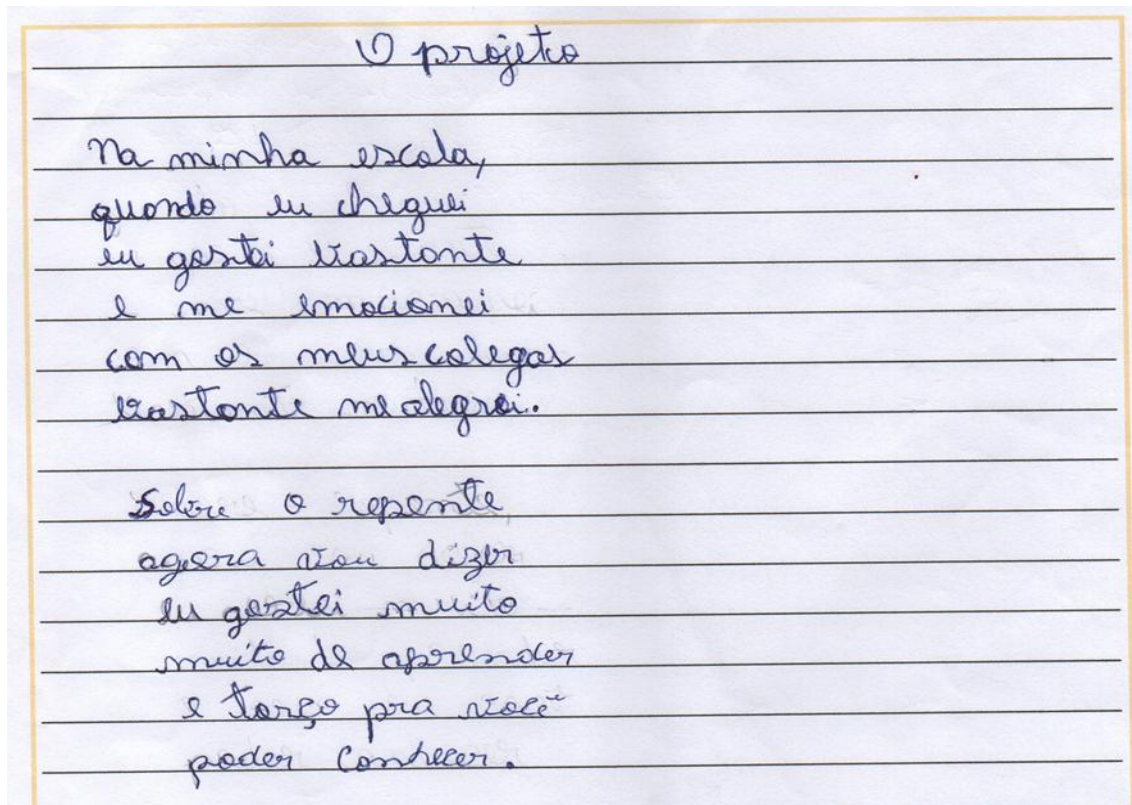 O projeto
Na minha escola,
quando eu cheguei
eu gostei bastante
e me emocionei
com os meus colegas
bastante me alegrei.
Sobre o repente
agora vou dizer
eu gostei muito
muito de aprender
e torço pra você
poder conhecer.